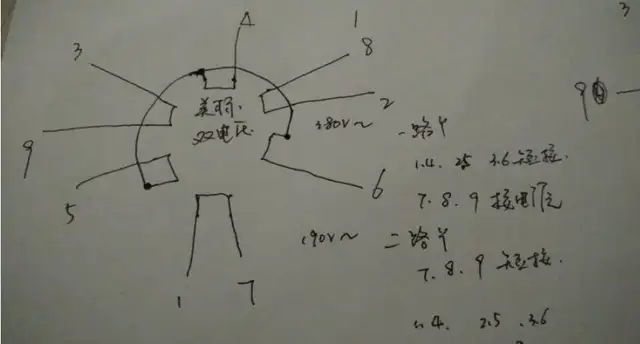 1
3
4
3
8
9
2
双电压
380V~ 一路Y
9
1.4. 2.5 3.6 短接.
5
6
7. 8. 9 接电源
190V~ 二路Y
7. 8. 9 短接.
1 7
1.4. 2.5 .3.6